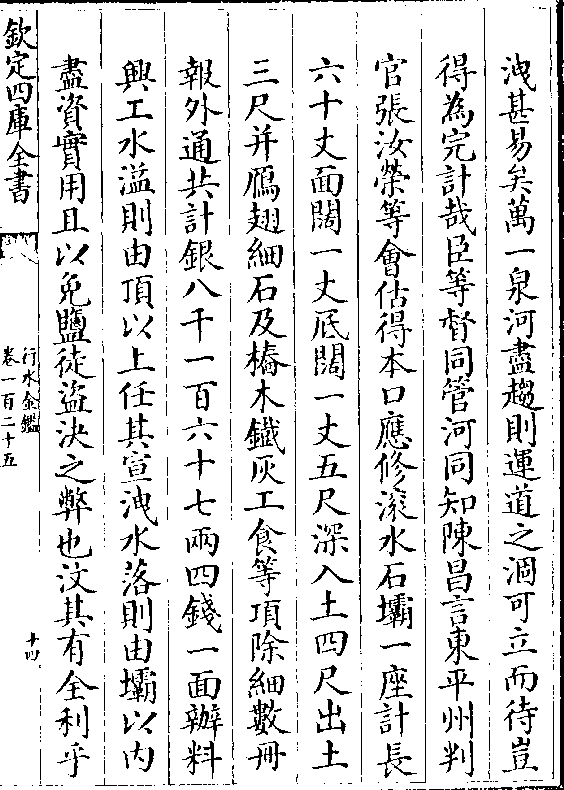 洩甚易矣萬一泉河盡趨則運道之涸可立而待豈
得為完計哉臣等督同管河同知陳昌言東平州判
官張汝榮等會估得本口應修滚水石壩一座計長
六十丈面闊一丈底闊一丈五尺深入土四尺出土
三尺并鴈翅細石及樁木鐵灰工食等項除細數冊
報外通共計銀八千一百六十七兩四錢一面辦料
興工水溢則由頂以上任其宣洩水落則由壩以内
盡資實用且以免鹽徒盜決之弊也汶其有全利乎
欽定四庫全書
行水金鑑
卷一百二十五
十四